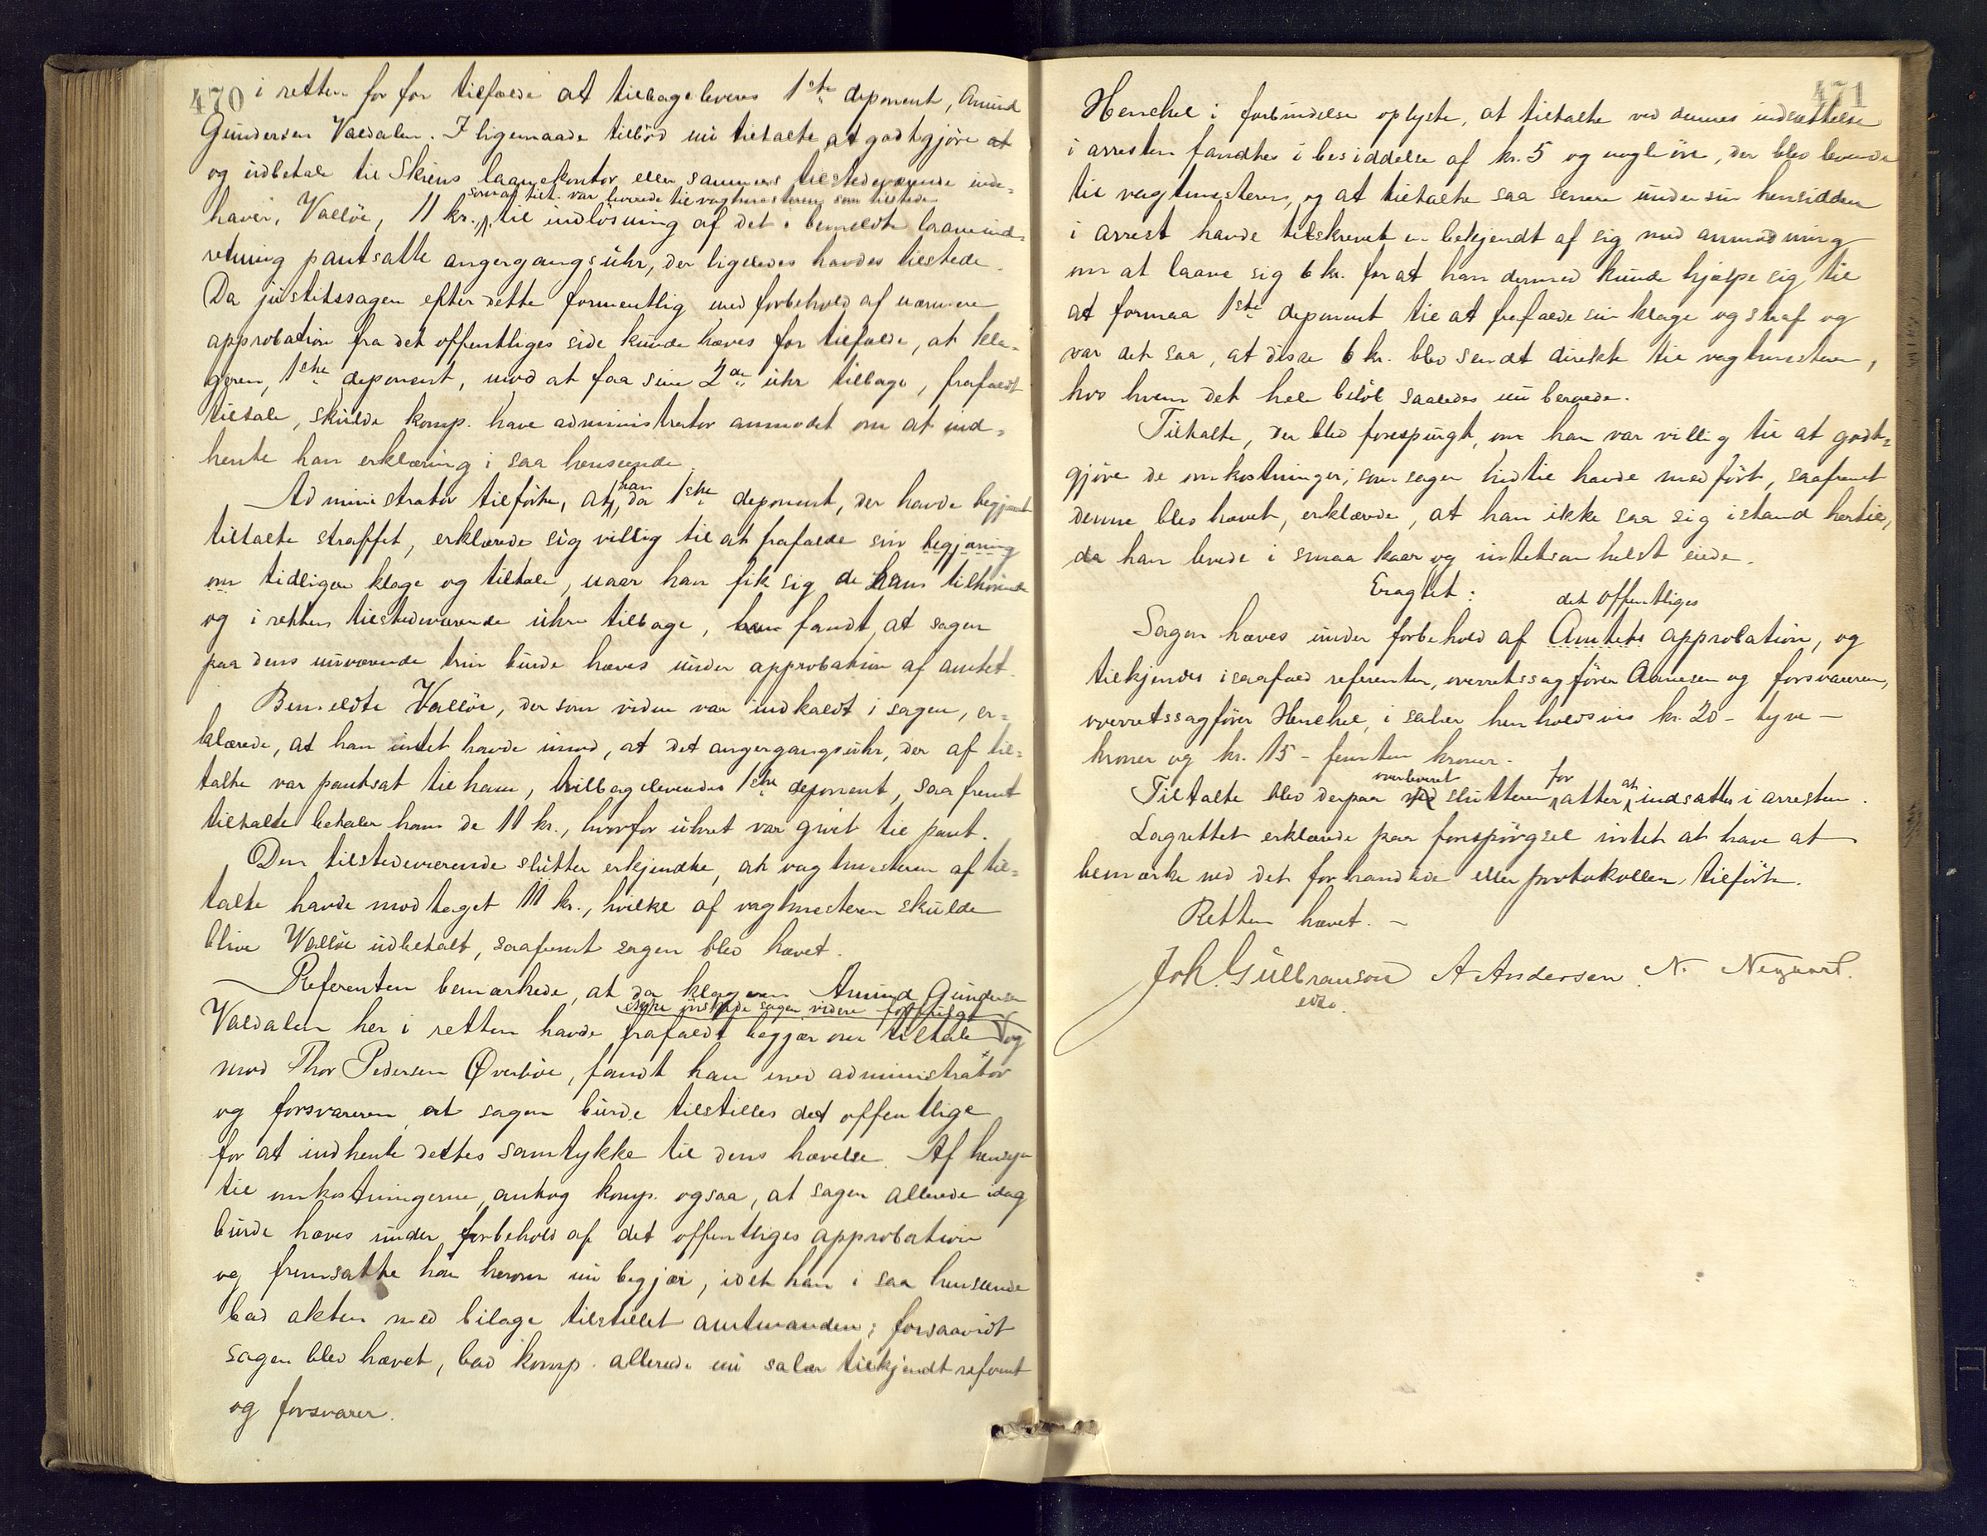 470
i retten for for tilfælde at tilbageleveres 1ste deponent, Amund
Gundersen Valdalen. I ligemaade tilbød nu tiltalte at godtgjøre at
og udbetale til Skiens laanekontor eller sammes tilstedeværende inde-
som af tilt. var leveret til vagtmesteren som tilstede
haver, Valløe, 11 kr., til indløsning af det i bemeldte laaneind-
retning pantsatte angergangsuhr, der ligeledes havdes tilstede.
Da justitssagen efter dette formentlig med forbehold af nærmere
approbation fra det offentliges side kunde hæves for tilfælde, at kla-
geren, 1ste deponent, mod at faa sine 2de uhr tilbage, frafaldt
tiltale, skulde komp. have administrator anmodet om at ind-
hente han erklæring i saa henseende.
Administrator tilførte, at han, da 1ste deponent, der havde begjært
tiltalte straffet, erklærede sig villig til at frafalde sin begjæring
om tidligere klage og tiltale, naar han fik sig de ham tilhørende
og i retten tilstedeværende uhre tilbage, han fandt, at sagen
paa dens nuværende trin burde hæves under approbation af amtet.
Bemeldte Valløe, der som vidne var indkaldt i sagen, er-
klærede, at han intet havde imod, at det angergangsuhr, der af til-
talte var pantsat til ham, tilbageleveredes 1ste deponent, saafremt
tiltalte betaler ham de 11 kr., hvorfor uhret var givet til pant.
Den tilstedeværende slutter erkjendte, at vagtmesteren af til-
talte havde modtaget 11 kr., hvilke af vagtmesteren skulde
blive Valløe udbetalt, saafremt sagen blev hævet.
Referenten bemærkede, at da klageren Amund Gundersen
ikke ønskede sagen videre forfulgt
Valdalen her i retten havde frafaldt begjær om tiltale og
mod Thor Pedersen Øverbøe, fandt han med administrator
og forsvareren at sagen burde tilstilles det offentlige
for at indhente dettes samtykke til dens hævelse. Af hensyn
til omkostningerne, antog komp. ogsaa, at sagen allerede idag
burde hæves under forbehold af det offentliges approbation
og fremsatte han herom nu begjær, idet han i saa henseende
bad akten med bilage tilstillet amtmanden; forsaavidt
sagen blev hævet, bad komp. allerede nu salær tilkjendt referent
og forsvarer.
471
Henchel i forbindelse oplyste, at tiltalte ved dennes indsættelse
i arresten fandtes i besiddelse af kr. 5 og nogle øre, der blev leveret
til vagtmesteren, og at tiltalte saa senere under sin hensidden
i arrest havde tilskrevet en bekjendt af sig med anmodning
om at laane sig 6 kr. for at han dermed kunde hjælpe sig til
at formaa 1ste deponent til at frafalde sin klage og straf og
var det saa, at disse 6 kr. blev sendt direkte til vagtmesteren,
hos hvem det hele beløb saaledes nu beroede.
Tiltalte, der blev forespurgt, om han var villig til at godt-
gjøre de omkostninger, som sagen hidtil havde medført, saafremt
denne blev hævet, erklærede, at han ikke saa sig istand hertil,
da han levede i smaa kaar og intetsomhelst eiede.
Eragtet:
det offentliges
Sagen hæves under forbehold af Amtets approbation, og
tilkjendes isaafald referenten, overretssagfører Aanesen og forsvareren,
overretssagfører Henchel, i salær henholdsvis kr. 20 – tyve –
kroner og kr. 15 – femten kroner.
overleveret for at
Tiltalte blev derpaa ved slutteren atter indsattes i arresten.
Lagrettet erklærede paa forespørgsel intet at have at
bemærke ved det forhandlede eller protokollen tilførte.
Retten hævet. –
Joh. Gulbranson A Andersen. N.
edsv.